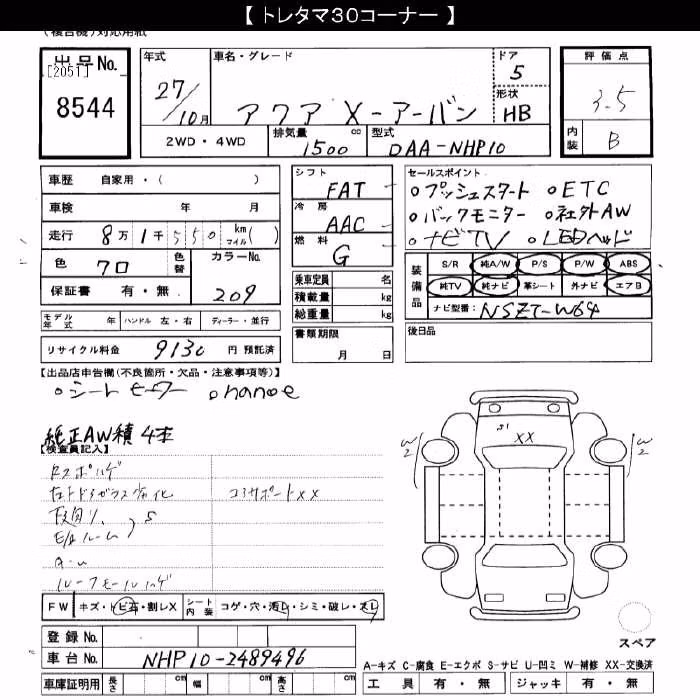 【 トレタマ30コーナー 】
(複合機)対応用紙
出品No.
[2051]
8544
年式
27/10月
車名・グレード
アクア X-アーバン
ドア
5
形状
HB
評価点
3.5
内装
B
2WD・4WD
排気量
1500 cc
型式
DAA-NHP10
車歴 自家用・( )
車検 年 月
走行 8万1千550 km マイル( )
色 クロ
色替
カラーNo.
209
保証書 有・無
モデル年式 年 ハンドル 左・右 ディーラー・並行
リサイクル料金 9130 円 預託済
シフト
FAT
冷房
AAC
燃料
G
乗車定員 名
積載量 kg
総重量 kg
書類期限
月 日
セールスポイント
○プッシュスタート ○ETC
○バックモニター ○社外AW
○ナビTV ○LEDヘッド
装備品
S/R 純A/W P/S P/W ABS
純TV 純ナビ 革シート 外ナビ エアB
ナビ型番: NSZT-W64
後日品
【出品店申告欄(不良箇所・欠品・注意事項等)】
○シートヒーター ○nanoe
純正AW積 4本
【検査員記入】
コアサポートXX
ルーフモールハゲ
FW キズ・トビ石・割レX
シート内装 コゲ・穴・汚レ・シミ・破レ・スレ
登録No.
車台No. NHP10-2489496
車庫証明用 長さ cm 幅 cm 高さ cm
S1
XX
W2
W2
スペア
A-キズ C-腐食 E-エクボ S-サビ U-凹ミ W-補修 XX-交換済
工具 有・無 ジャッキ 有・無